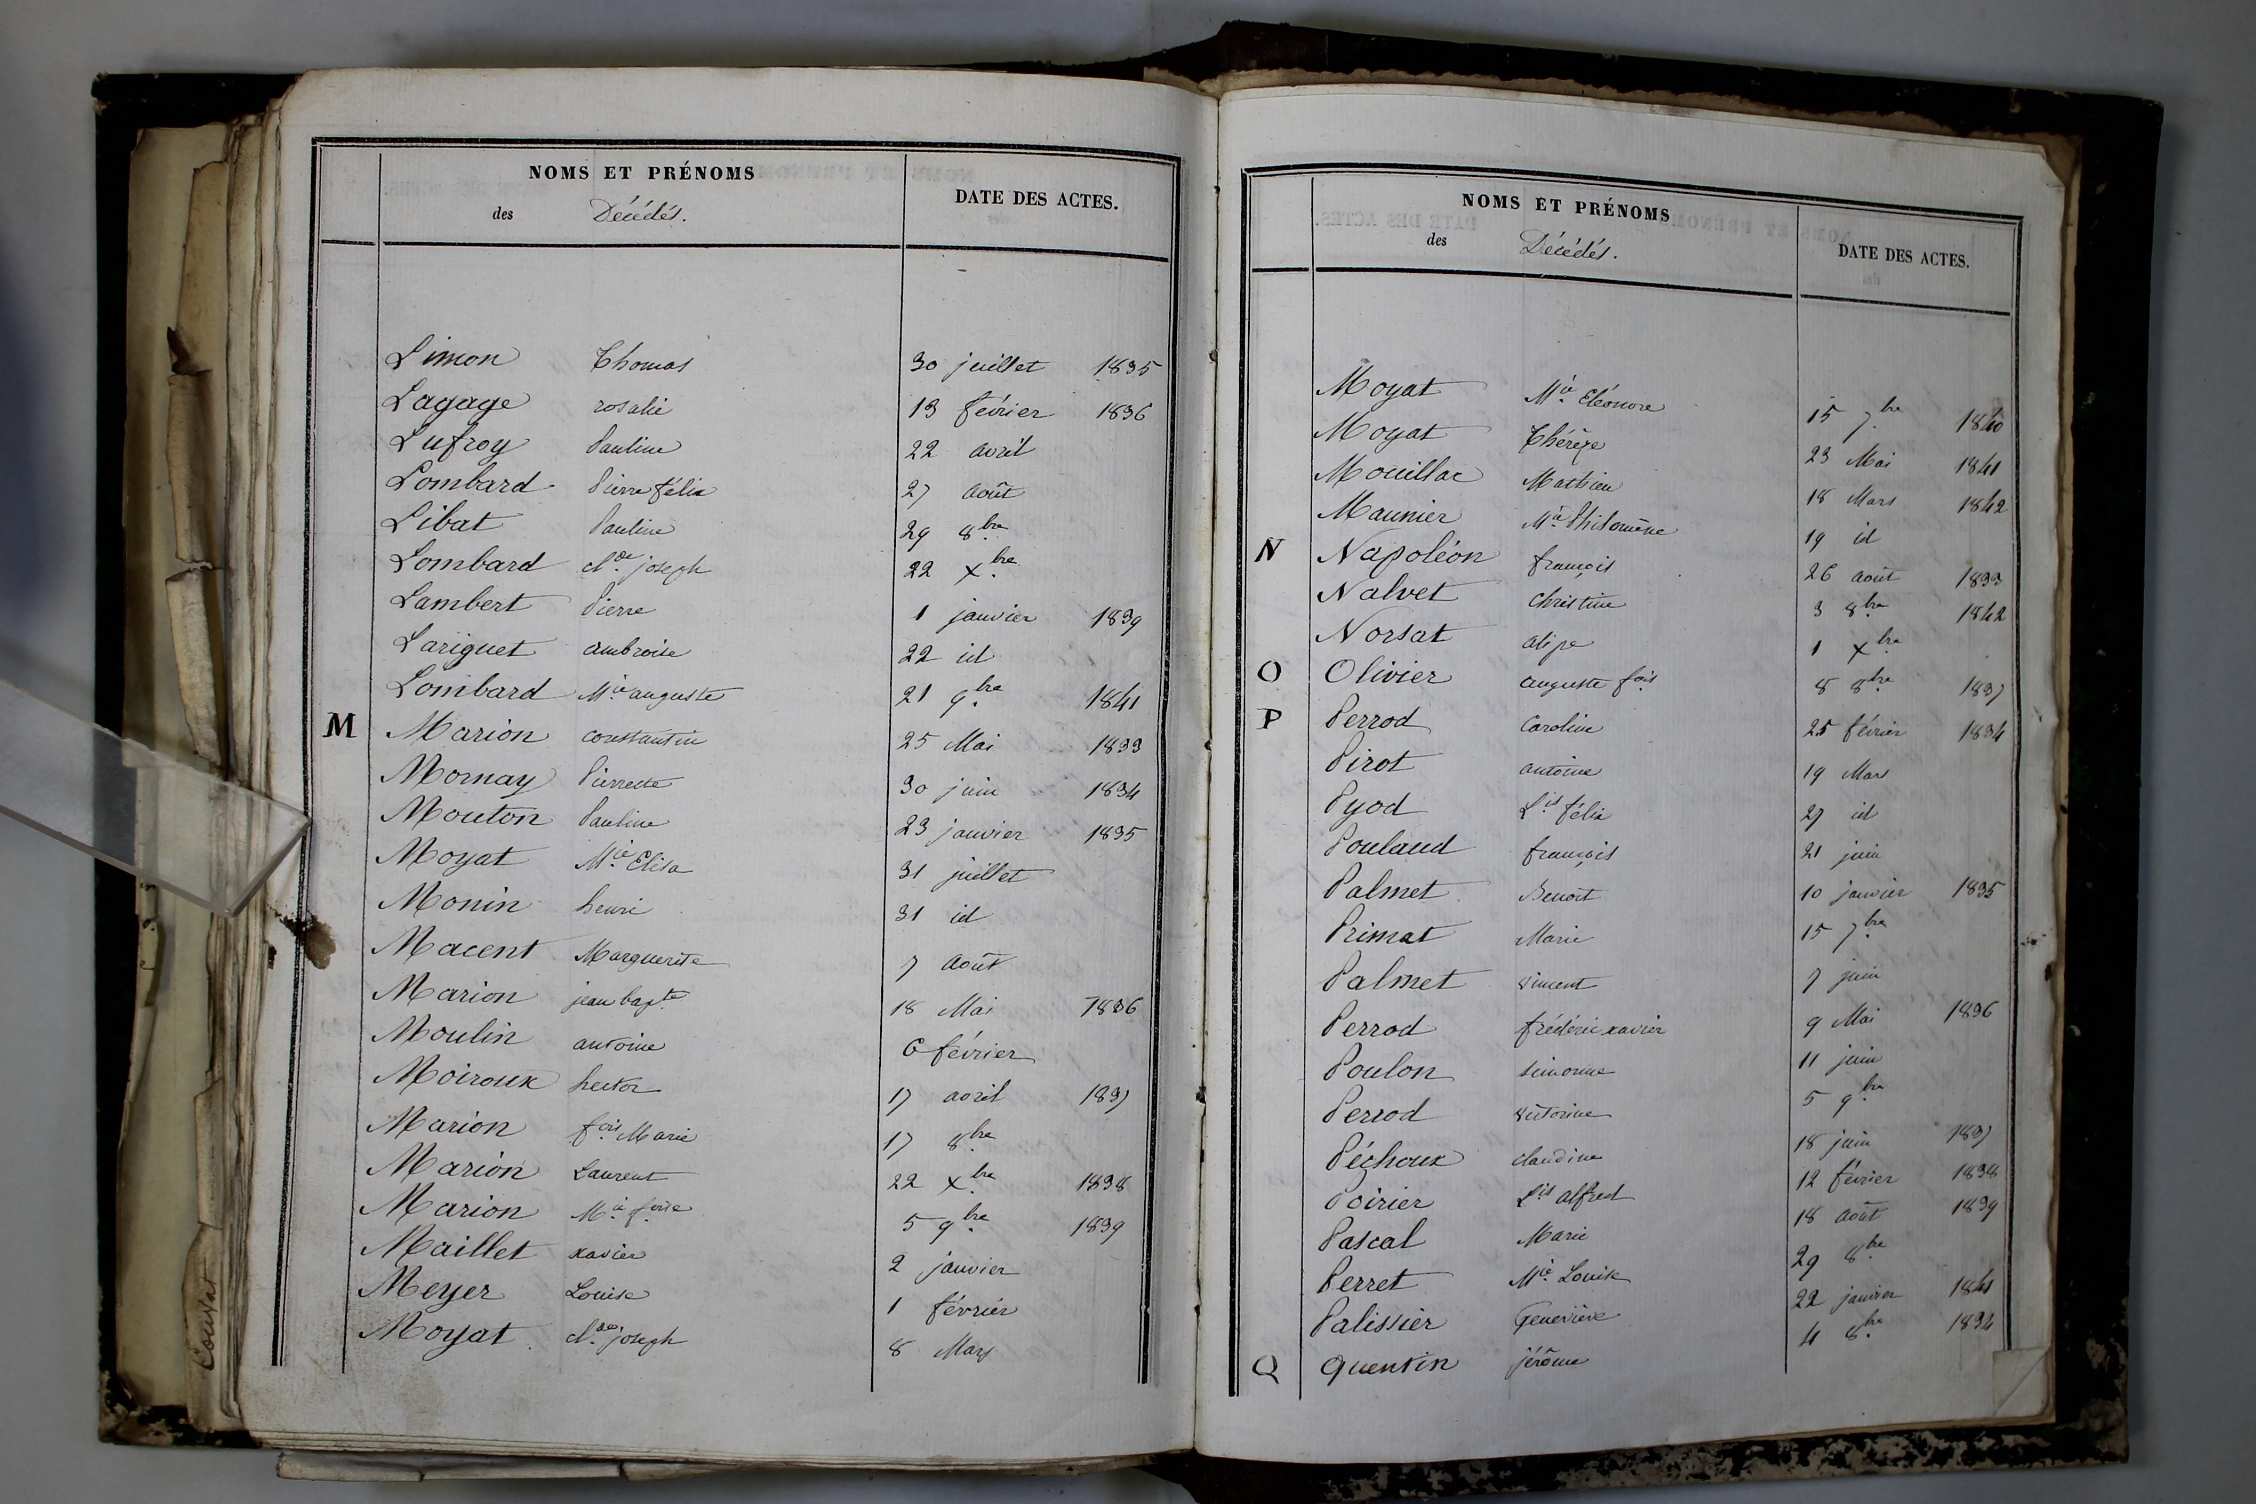 NOMS ET PRÉNOMS
des Décédés.
DATE DES ACTES.
Limon Thomas 30 juillet 1835
Lagage rosalie 13 février 1836
Lufroy Pauline 22 avril
Lombard Pierre félix 27 août
Libat Pauline 29 8bre
Lombard cl.de joseph 22 xbre
Lambert Pierre 1 janvier 1839
Lariguet ambroise 22 id
Lombard M.ie auguste 21 9bre 1841
M Marion constantin 25 Mai 1833
Mornay Pierrette 30 juin 1834
Mouton Pauline 23 janvier 1835
Moyat M.ie Elisa 31 juillet
Monin henri 31 id
Macent Marguerite 7 août
Marion jean bapte 18 Mai 1836
Moulin antoine 6 février
Moiroux hector 17 avril 1837
Marion f.ois Marie 17 8bre
Marion Laurent 22 xbre 1838
Marion M.ie f.oise 5 9bre 1839
Maillet xavier 2 janvier
Meyer Louise 1 février
Moyat cl.de joseph 8 Mars
Couvat
NOMS ET PRÉNOMS
des Décédés.
DATE DES ACTES.
Moyat M.ie Eléonore 15 7bre 1840
Moyat Thérèze 23 Mai 1841
Mouillac Mathieu 18 Mars 1842
Maunier M.ie Philomène 19 id
N Napoléon françois 26 août 1833
Nalvet christine 3 8bre 1842
Norsat alipe 1 xbre
O Olivier auguste fois 8 8bre 1837
P Perrod caroline 25 février 1834
Pirot antoine 19 Mars
Pyod L.is félix 27 id
Poulaud françois 21 juin
Palmet Benoit 10 janvier 1835
Primat Marie 15 7bre
Palmet vincent 7 juin
Perrod frédéric xavier 9 Mai 1836
Poulon simonne 11 juin
Perrod victorine 5 9bre
Péchoux claudine 18 juin 1837
Poirier L.is alfred 12 février 1838
Pascal Marie 18 août 1839
Perret M.ie Louise 29 8bre
Palissier Geneviève 22 janvier 1841
Q Quentin jérôme 4 8bre 1834